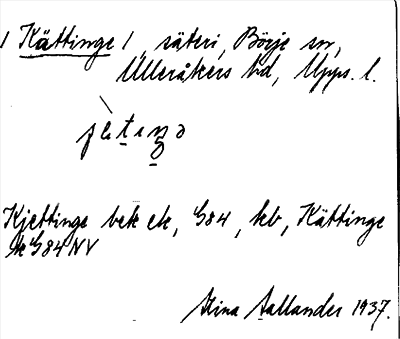 / Kättinge /, säteri, Börje sn,
Ulleråkers hd, Upps. l.
Kjettinge bek ek, G84, kb, Kättinge
ek G84 NV
Stina Tallander 1937.